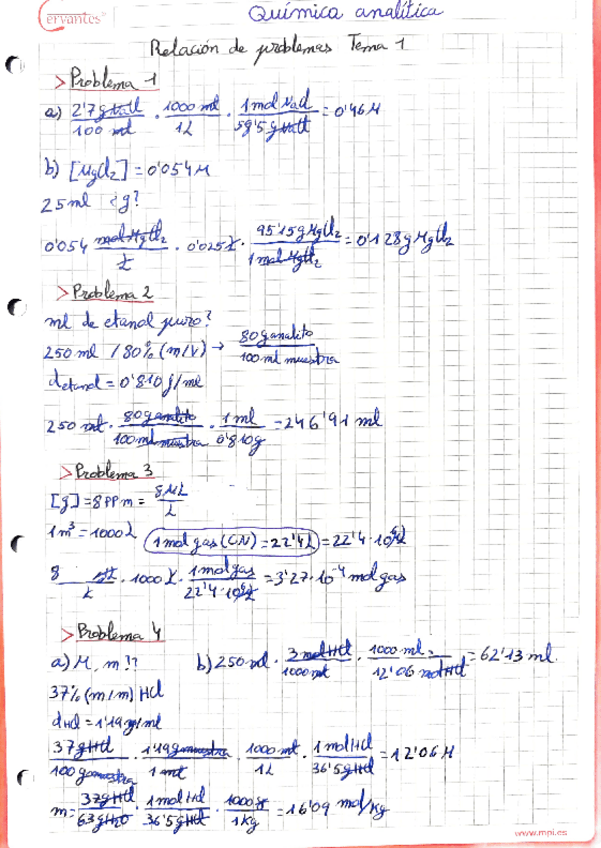 cervantes
Química analítica
Relación de problemas Tema 1
> Problema 1
a) 2'7g NaCl / 100 ml · 1000 ml / 1L · 1 mol NaCl / 58'5 g NaCl = 0'46 M
b) [MgCl₂] = 0'054 M
25 ml ¿g?
0'054 mol MgCl₂ / L · 0'025 L · 95'15 g MgCl₂ / 1 mol MgCl₂ = 0'128 g MgCl₂
> Problema 2
ml de etanol puro?
250 ml / 80% (m/v) → 80 g analito / 100 ml muestra
detanol = 0'810 g/ml
250 ml · 80 g analito / 100 ml muestra · 1 ml / 0'810 g = 246'91 ml
> Problema 3
[g] = 8 ppm = 8 µL / L
1 m³ = 1000 L 1 mol gas (CN) = 22'4 L = 22'4 · 10⁶
8 / L · 1000 L · 1 mol gas / 22'4 · 10⁶ = 3'27 · 10⁻⁴ mol gas
> Problema 4
a) M, m?? b) 250 ml · 3 mol HCl / 1000 ml · 1000 ml / 12'06 mol HCl = 62'13 ml
37% (m/m) HCl
dHCl = 1'19 g/ml
37 g HCl / 100 g muestra · 1'19 g muestra / 1 ml · 1000 ml / 1L · 1 mol HCl / 36'5 g HCl = 12'06 M
m = 37 g HCl / 63 g H₂O · 1 mol HCl / 36'5 g HCl · 1000 g / 1 kg = 16'09 mol/kg
www.mpi.es